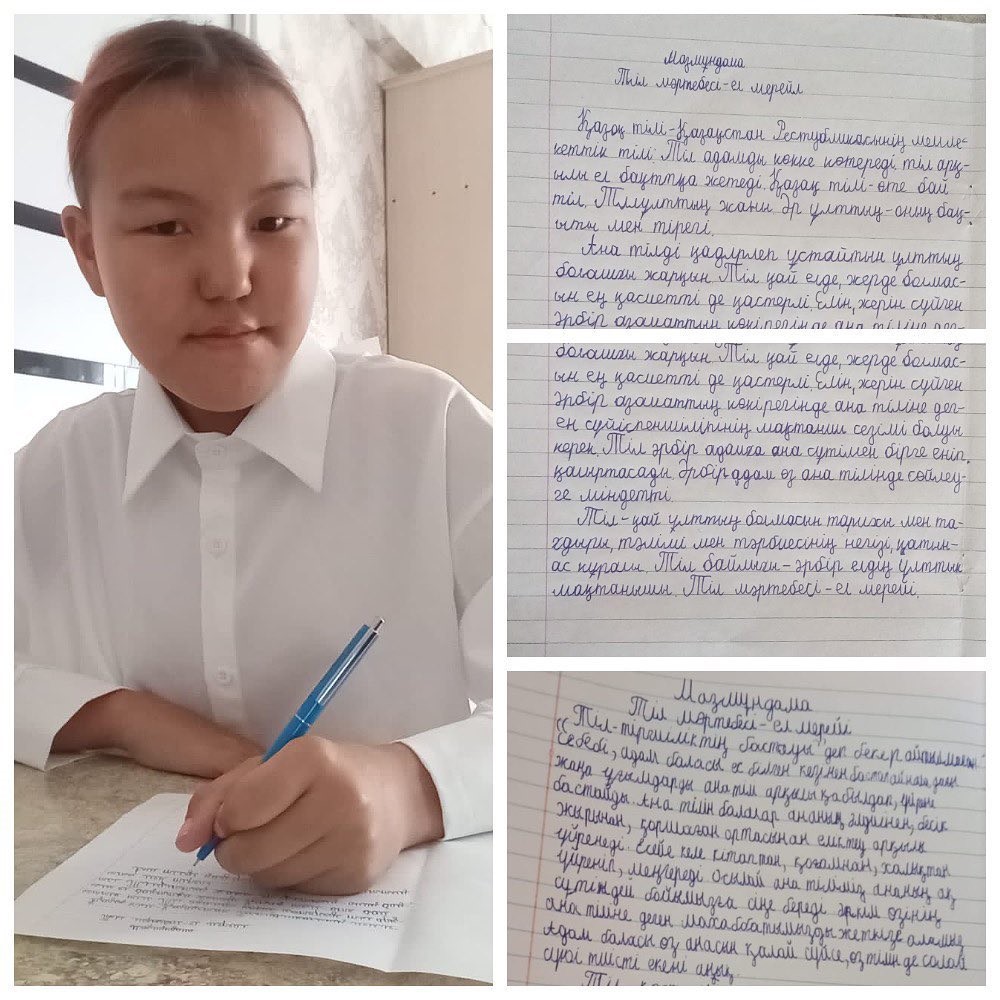 Мазмұндама
Тіл мәртебесі - ел мерейі
Қазақ тілі - Қазақстан Республикасының мемле-
кеттік тілі. Тіл адамды көкке көтереді, тіл арқ-
ылы ел бақытқа жетеді. Қазақ тілі - өте бай
тіл. Тіл ұлттың жаны. Әр ұлттың - оның бақ-
ыты мен тірегі.
Ана тілді қадірлеп ұстайтын ұлттың
болашағы жарқын. Тіл қай елде, жерде болмас-
ын ең қасиетті де қастерлі. Елін, жерін сүйген
әрбір азаматтың көкірегінде ана тіліне дег-
болашағы жарқын. Тіл қай елде, жерде болмас-
ын ең қасиетті де қастерлі. Елін, жерін сүйген
әрбір азаматтың көкірегінде ана тіліне дег-
ен сүйіспеншілігінің мақтаныш сезімі болуы
керек. Тіл әрбір адамға ана сүтімен бірге еніп,
Әрбір адам өз ана тілінде сөйлеу-
ге міндетті.
Тіл - қай ұлттың болмасын тарихы мен та-
ғдыры, тәлімі мен тәрбиесінің негізі, қатын-
ас құралы. Тіл байлығы - әрбір елдің ұлттық
мақтанышы. Тіл мәртебесі - ел мерейі.
Мазмұндама
Тіл мәртебесі - ел мерейі
"Тіл - тіршіліктің бастауы" деп бекер айтылмаған.
Себебі, адам баласы ес білген кезінен бастап айнала
жаңа ұғымдарды ана тілі арқылы қабылдап, үйрене
бастайды. Ана тілін балалар ананың әлдиінен, бесік
жырынан, қоршаған ортасынан еліктеу арқылы
үйренеді. Есейе келе кітаптан, қоғамнан, халықтан
үйреніп, меңгереді. Осылай ана тіліміз ананың ақ
сүтіндей бойымызға сіңе береді. Әркім өзінің
ана тіліне деген махаббатымызды жеткізе аламыз
Адам баласы өз анасын қалай сүйсе, өз тілін де солай
сүюі тиісті екені анық.
Тіл